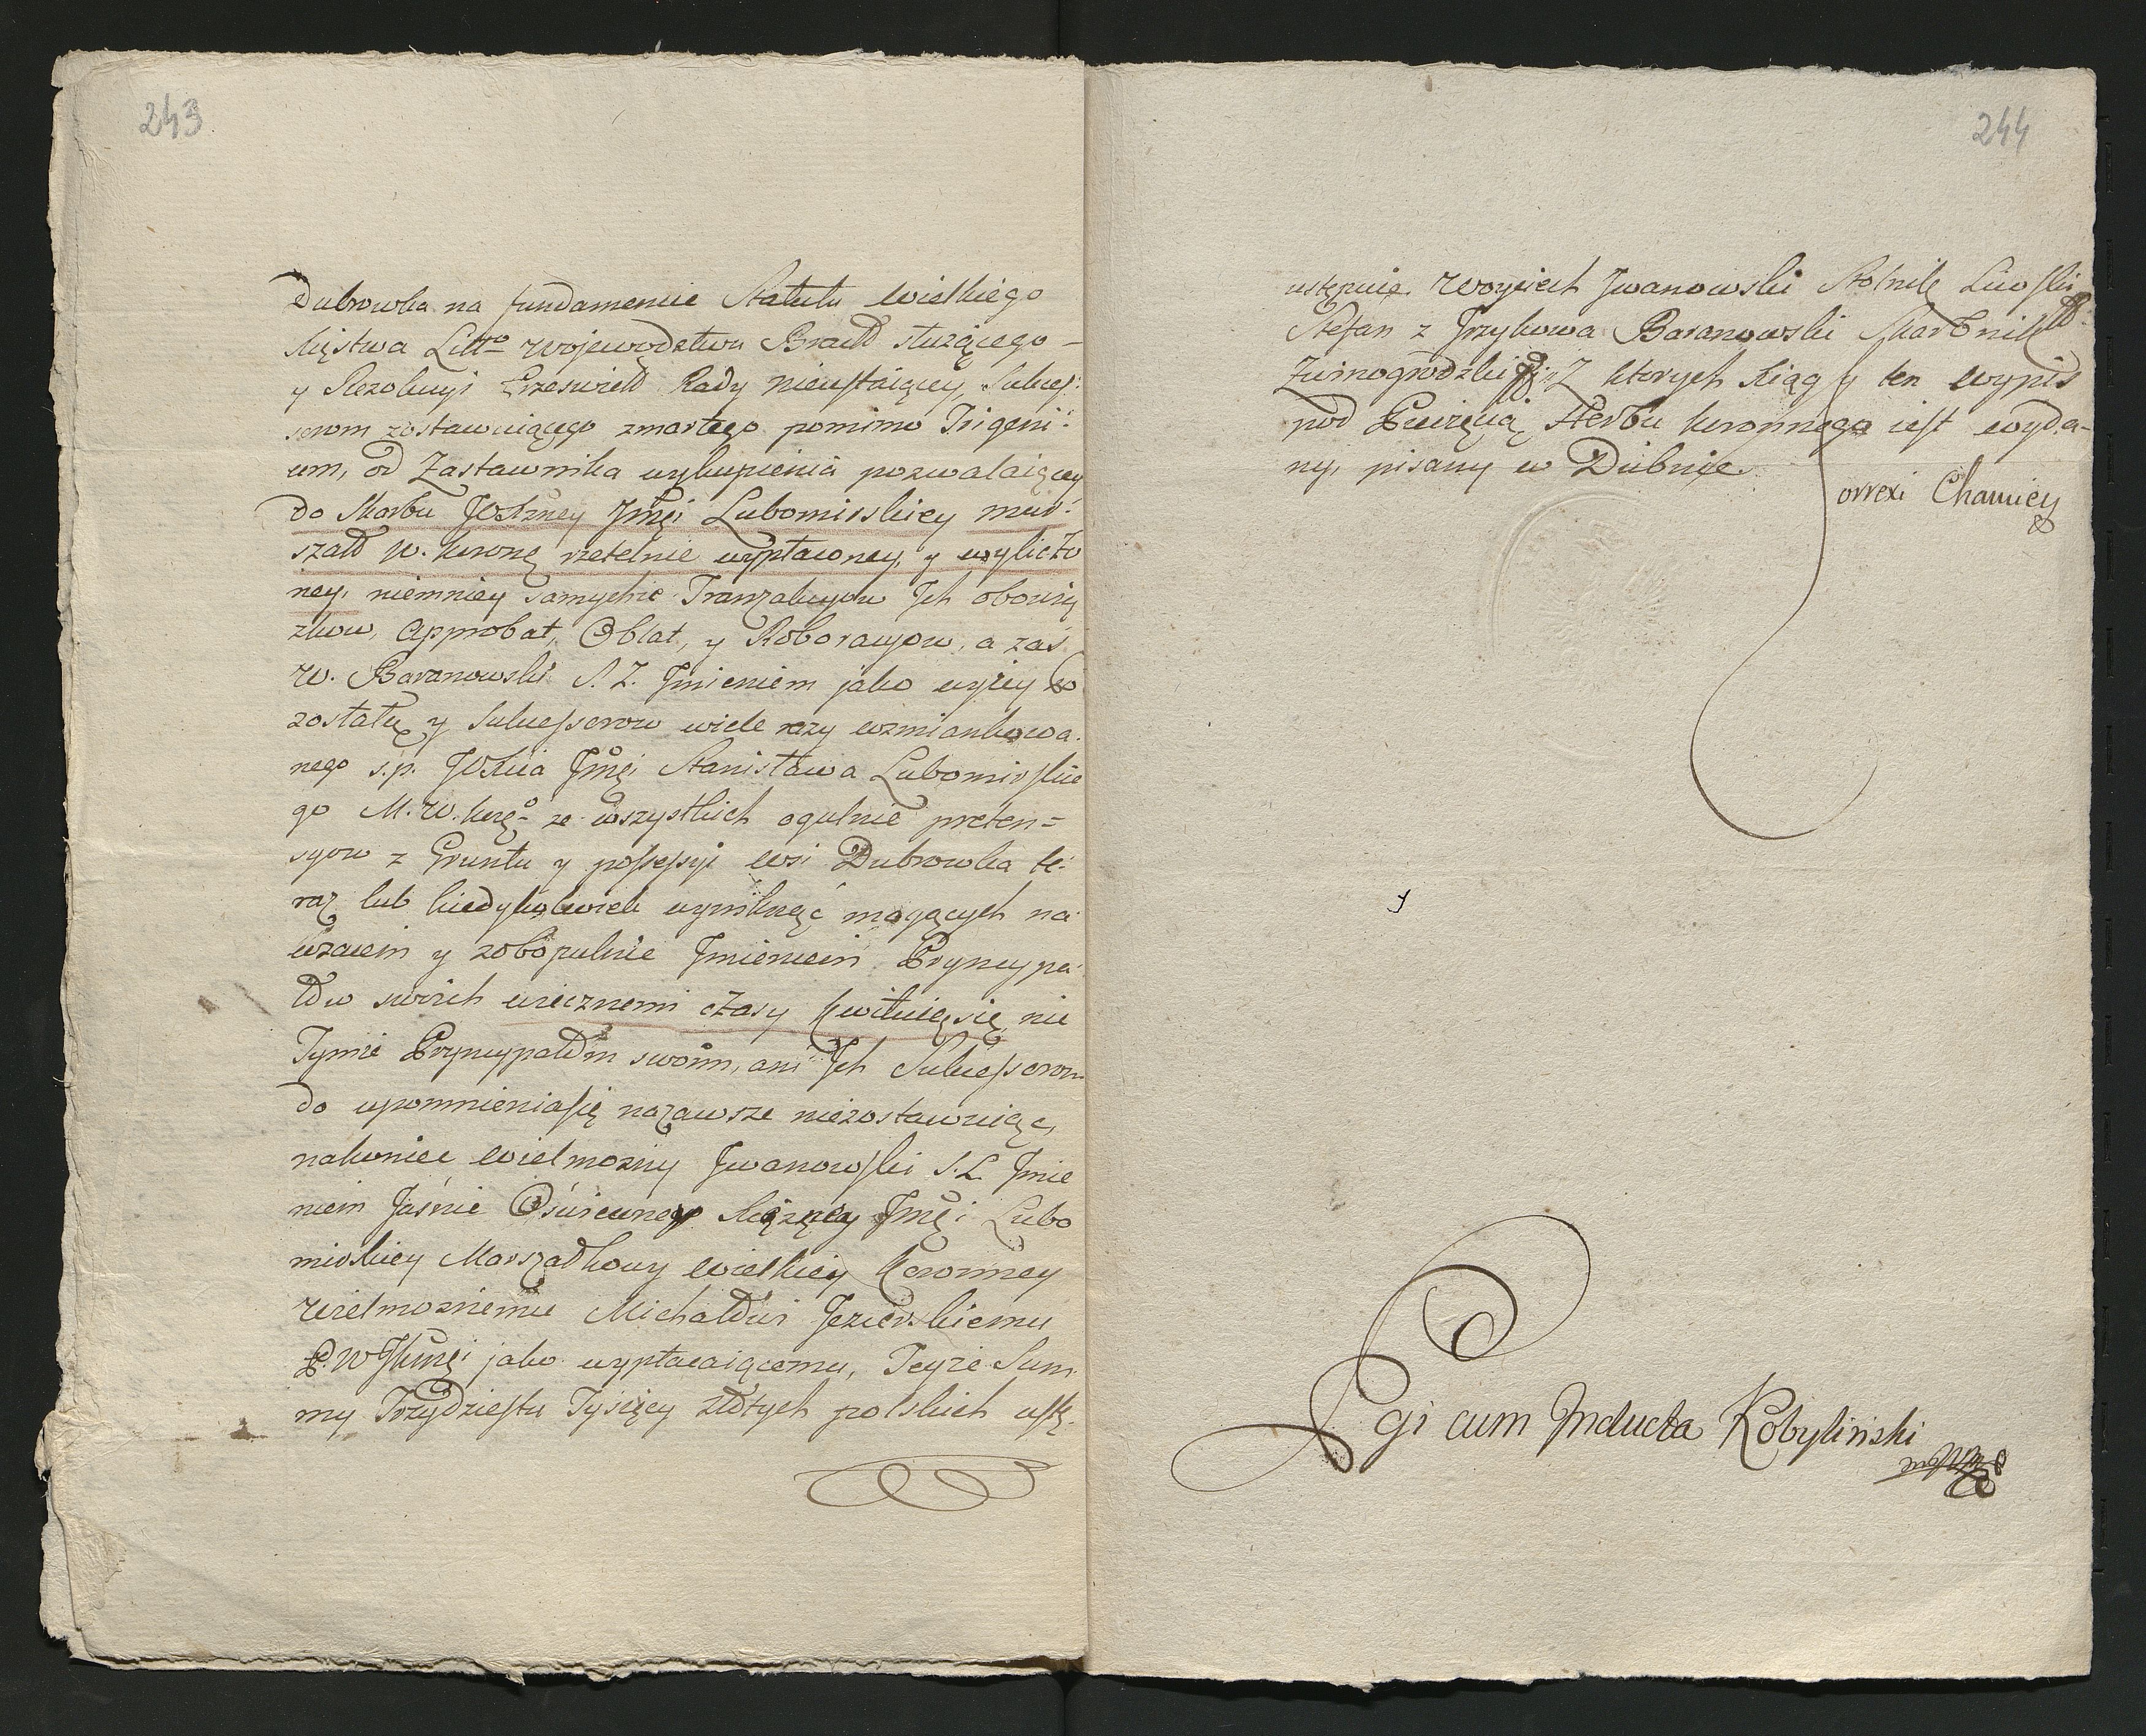 243
Dubrowka na fundamencie Statutu wielkiego
Księstwa Litt-o Wojewodztwu Bracł służącego -
y Rezolucyi Prześwietł Rady nieustaiącey, Sukces:
sorom zostawuiącego zmarłego pomimo Trigeni:
um, od Zastawnika wykupienia pozwalaiącey
do Skarbu JOXżney Jmci Lubomirskiey mar:
szałł W. koronę rzetelnie wypłaconey, y wyliczo
ney, niemniey samychże Tranzakcyow Ich obowią
zkow, Approbat, Oblat, y Roboracyow, a zaś
W. Baranowski S. Z. Jmieniem jako wyżey
zostałey Sukcessorow wiele razy wzmiankowa.
nego ś.p. JOXcia Jmci Stanisława Lubomirskie
go M. W. korę-o ze wszystkich ogulnie preten=
syow z Gruntu y possessyi wsi Dubrowka te:
raz lub kiedykolwiek wyniknąć mogących na
wzaiem y zobopulnie Jmieniem Pryncypa
łow swoich wiecznemi czasy kwituią się, nic
Tymże Pryncypałom swoim, ani Ich Sukcessorom
do upomnienia się nazawsze niezostawuiąc,
nakoniec Wielmożny Jwanowski S. L. Jmie
niem Jaśnie Oświeconey Xiężney Jmci Lubo
mirskiey Marszałkowy Wielkiey Koronney
Wielmożniemu Michałowi Jezierskiemu
jako wypłacaiącemu, Teyże Sum
my Trzydziestu Tysięcy złotych polskich ustę.
244
ustępuię. Woyciech Jwanowski Stolnik Liwski
Stefan z Grzykowa Baranowski Skarbnik
Zwinogrodzki Z ktorych Xiąg y ten wypis
pod Pieczęcią Herbu koronnego iest wyda-
ny, pisany w Dubnie.
Correxi Chamiey
y
Legi cum Inducta Kobyliński
mp